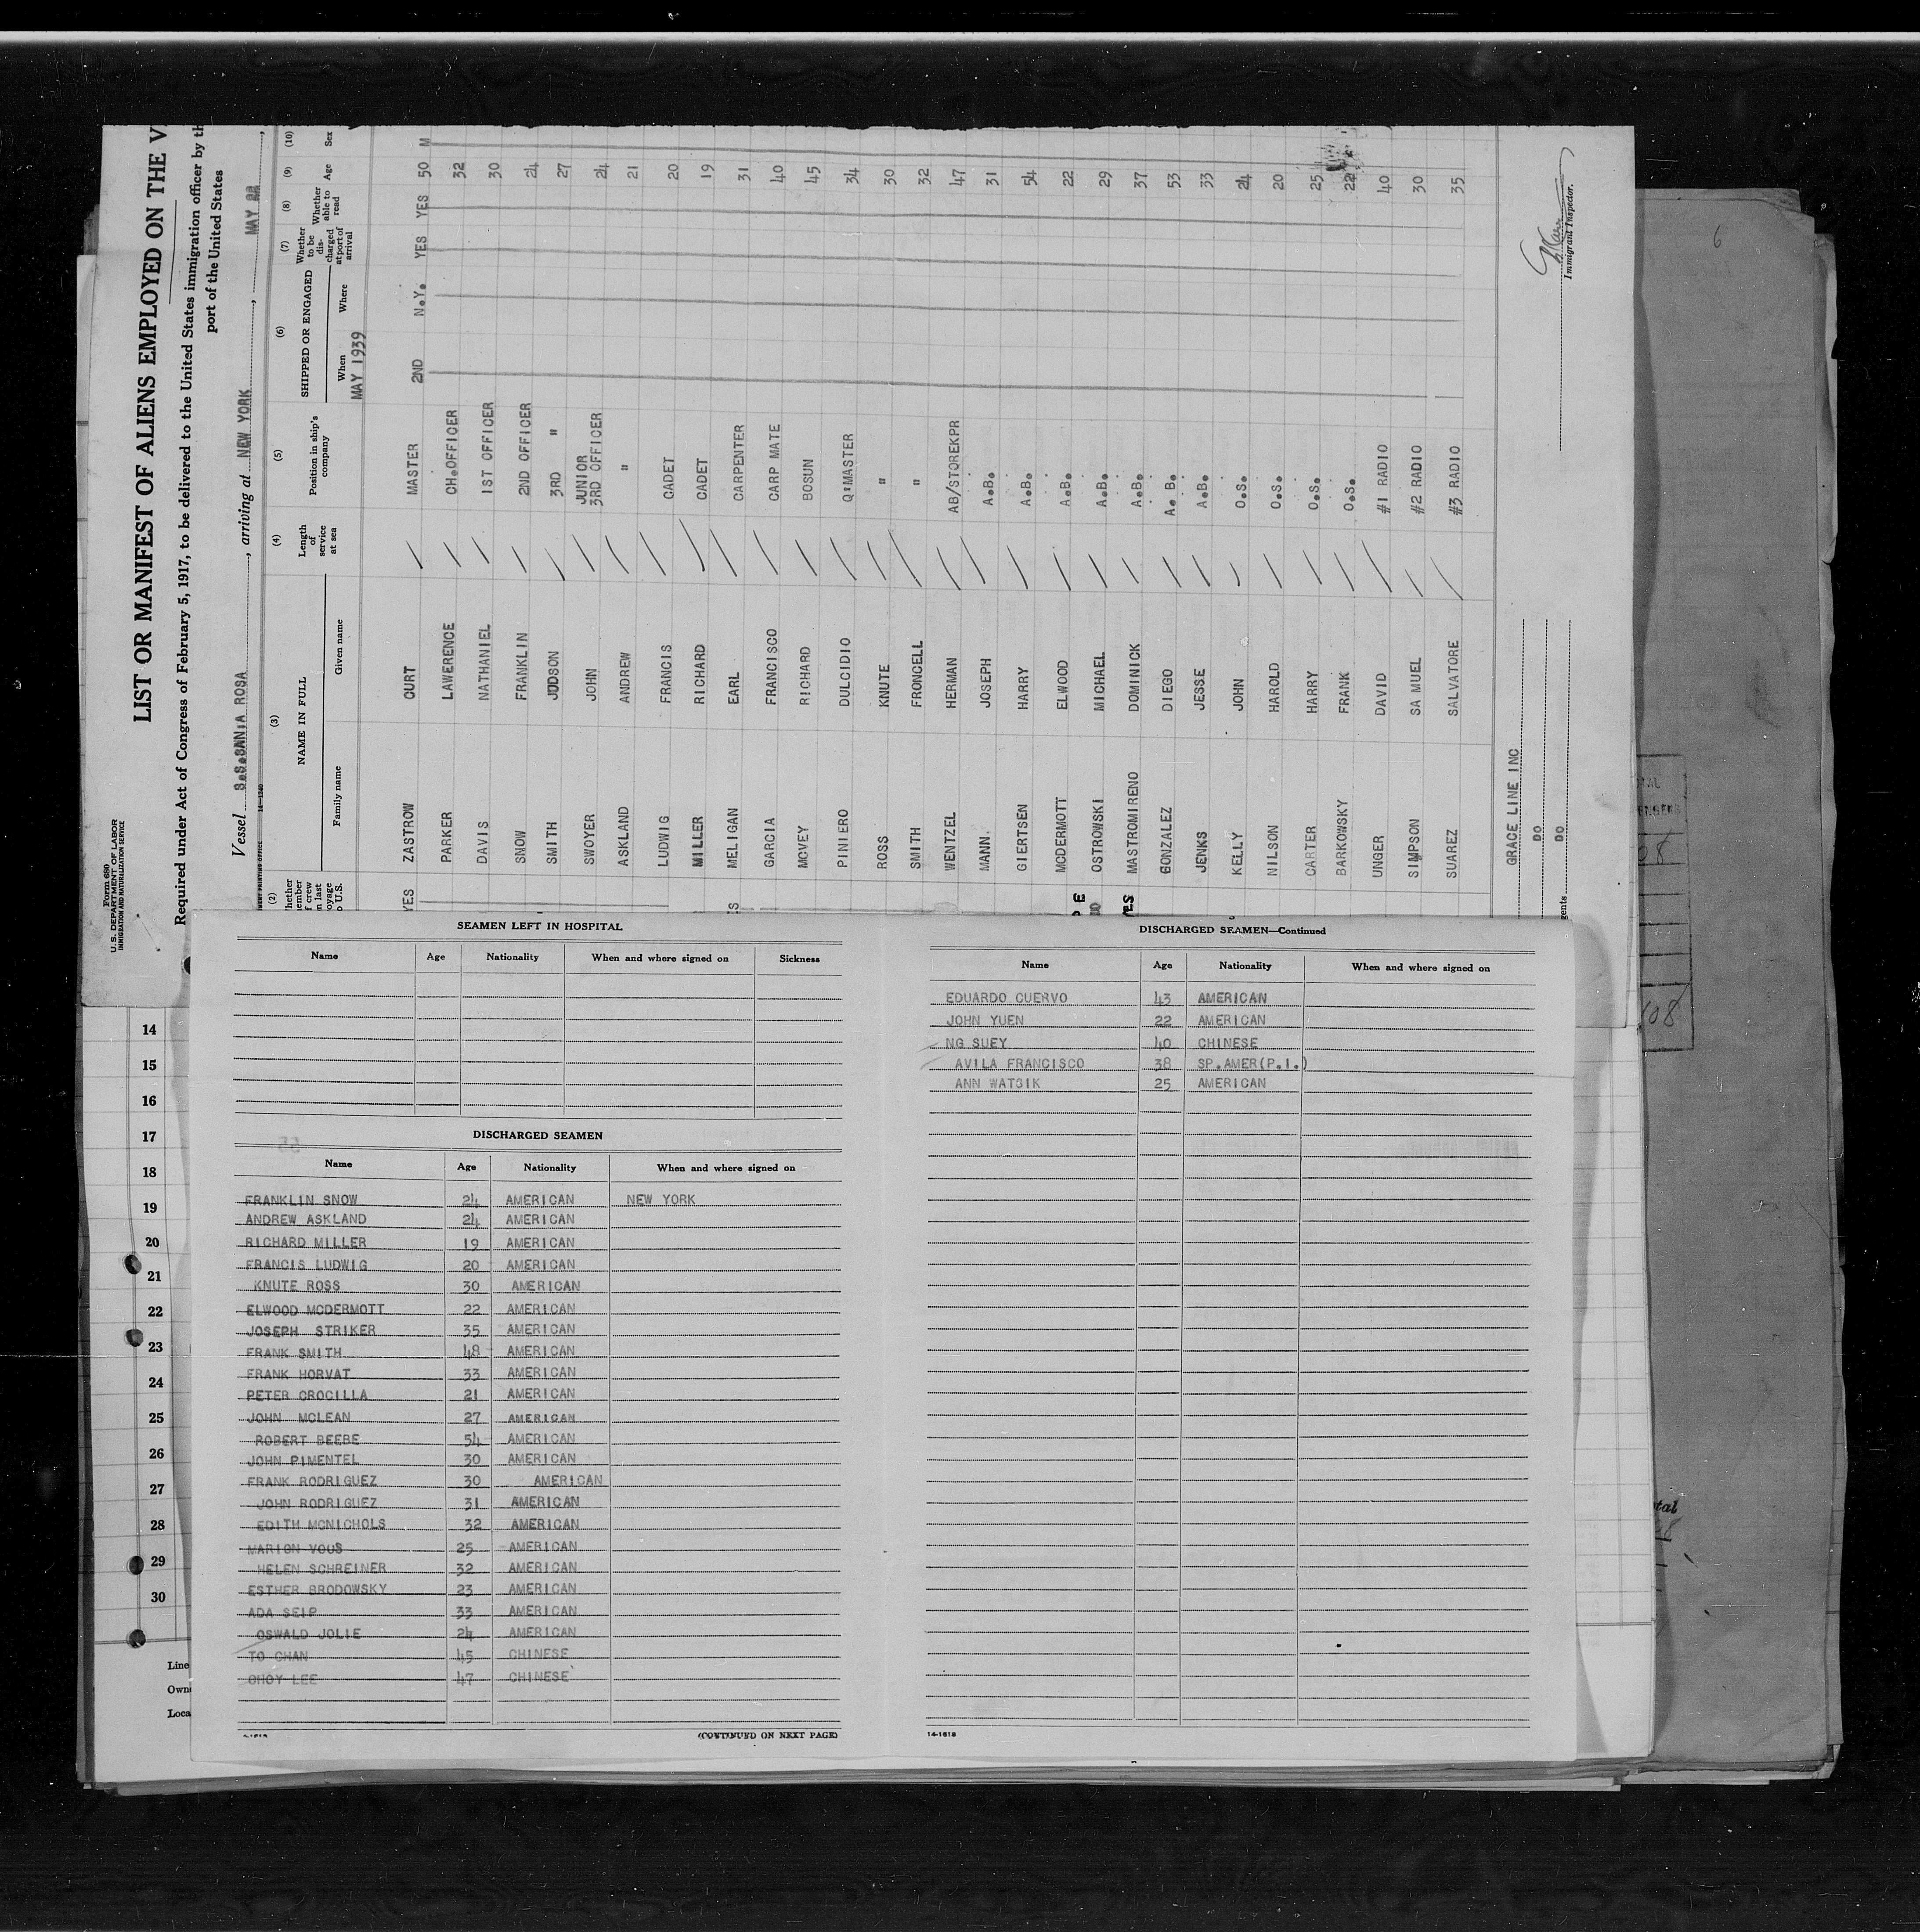 Form 680
U.S. DEPARTMENT OF LABOR
IMMIGRATION AND NATURALIZATION SERVICE
LIST OR MANIFEST OF ALIENS EMPLOYED ON THE V
Required under Act of Congress of February 5, 1917, to be delivered to the United States immigration officer by th
port of the United States
Vessel S.S. SANTA ROSA, arriving at NEW YORK, MAY
(2) (3) (4) (5) (6) (7) (8) (9) (10)
NAME IN FULL Length of service at sea Position in ship's company SHIPPED OR ENGAGED Whether to be discharged at port of arrival Whether able to read Age Sex
Family name Given name When Where
MAY 1939
YES ZASTROW CURT MASTER 2ND N.Y. YES YES 50 M
PARKER LAWERENCE CH.OFFICER 32
DAVIS NATHANIEL 1ST OFFICER 30
SNOW FRANKLIN 2ND OFFICER 24
SMITH JUDSON 3RD " 27
SWOYER JOHN JUNIOR 3RD OFFICER 24
ASKLAND ANDREW " 21
LUDWIG FRANCIS CADET 20
MILLER RICHARD CADET 19
MELIGAN EARL CARPENTER 31
GARCIA FRANCISCO CARP MATE 40
MCVEY RICHARD BOSUN 45
PINIERO DULCIDIO Q'MASTER 34
ROSS KNUTE " 30
SMITH FRONCELL " 32
WENTZEL HERMAN AB/STOREKPR 47
MANN. JOSEPH A.B. 31
GIERTSEN HARRY A.B. 54
MCDERMOTT ELWOOD A.B. 22
OSTROWSKI MICHAEL A.B. 29
MASTROMIRENO DOMINICK A.B. 37
GONZALEZ DIEGO A. B. 53
JENKS JESSE A.B. 33
KELLY JOHN O.S. 24
NILSON HAROLD O.S. 20
CARTER HARRY O.S. 25
BARKOWSKY FRANK O.S. 22
UNGER DAVID #1 RADIO 40
SIMPSON SA MUEL #2 RADIO 30
SUAREZ SALVATORE #3 RADIO 35
GRACE LINE INC
DO
DO
Immigrant Inspector.
SEAMEN LEFT IN HOSPITAL
Name Age Nationality When and where signed on Sickness
DISCHARGED SEAMEN
Name Age Nationality When and where signed on
FRANKLIN SNOW 24 AMERICAN NEW YORK
ANDREW ASKLAND 24 AMERICAN
RICHARD MILLER 19 AMERICAN
FRANCIS LUDWIG 20 AMERICAN
KNUTE ROSS 30 AMERICAN
ELWOOD MCDERMOTT 22 AMERICAN
JOSEPH STRIKER 35 AMERICAN
FRANK SMITH 48 AMERICAN
FRANK HORVAT 33 AMERICAN
PETER CROCILLA 21 AMERICAN
JOHN MCLEAN 27 AMERICAN
ROBERT BEEBE 54 AMERICAN
JOHN PIMENTEL 30 AMERICAN
FRANK RODRIGUEZ 30 AMERICAN
JOHN RODRIGUEZ 31 AMERICAN
EDITH MCNICHOLS 32 AMERICAN
MARION VOUS 25 AMERICAN
HELEN SCHREINER 32 AMERICAN
ESTHER BRODOWSKY 23 AMERICAN
ADA SEIP 33 AMERICAN
OSWALD JOLIE 24 AMERICAN
TO CHAN 45 CHINESE
CHOY LEE 47 CHINESE
(CONTINUED ON NEXT PAGE)
DISCHARGED SEAMEN—Continued
Name Age Nationality When and where signed on
EDUARDO CUERVO 43 AMERICAN
JOHN YUEN 22 AMERICAN
NG SUEY 40 CHINESE
AVILA FRANCISCO 38 SP.AMER(P.I.)
ANN WATSIK 25 AMERICAN
14-1618
14
15
16
17
18
19
20
21
22
23
24
25
26
27
28
29
30
Line
Own
Loca
6
108
tal